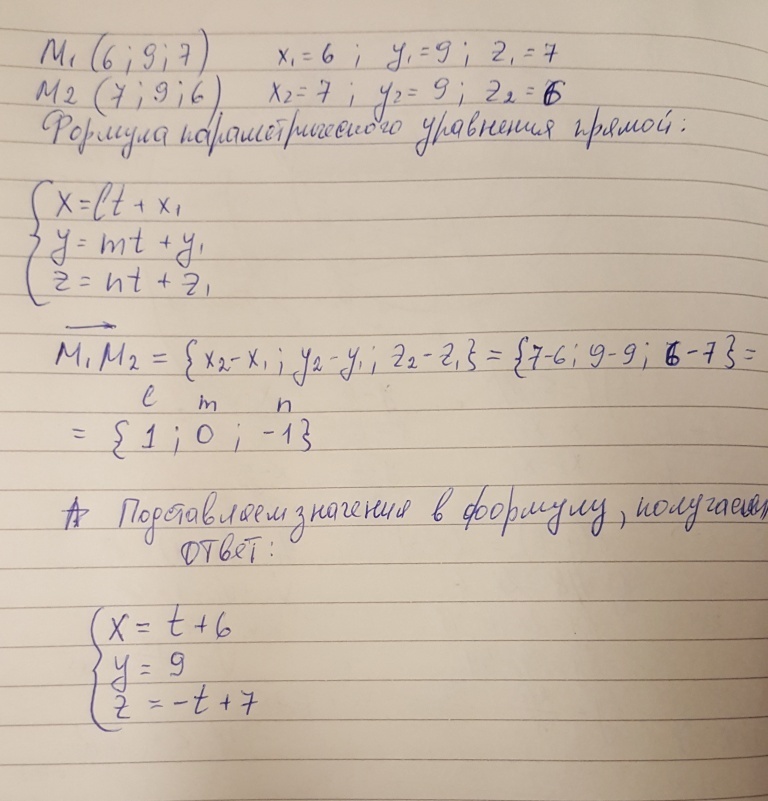 M1 (6; 9; 7) x1 = 6 ; y1 = 9 ; z1 = 7
M2 (7; 9; 6) x2 = 7 ; y2 = 9 ; z2 = 6
Формула параметрического уравнения прямой:
x = lt + x1
y = mt + y1
z = nt + z1
M1M2 = {x2-x1; y2-y1; z2-z1} = {7-6; 9-9; 6-7} =
l m n
= {1; 0; -1}
Подставляем значения в формулу, получаем
ответ:
x = t+6
y = 9
z = -t+7